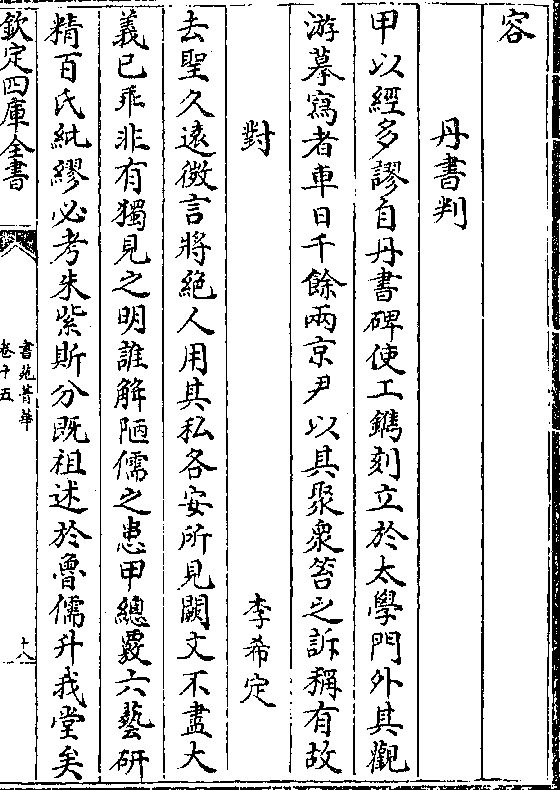 容
丹書判
甲以經多謬自丹書碑使工鐫刻立於太學門外其觀
游摹寫者車日千餘兩京尹以其聚衆笞之訴稱有故
對　李希定
去聖久遠微言將絕人用其私各安所見闕文不盡大
義已乖非有獨見之明誰解陋儒之患甲總覈六藝研
精百氏紕繆必考朱紫斯分既祖述於魯儒升我堂矣
欽定四庫全書
書苑菁華
卷十五
十八